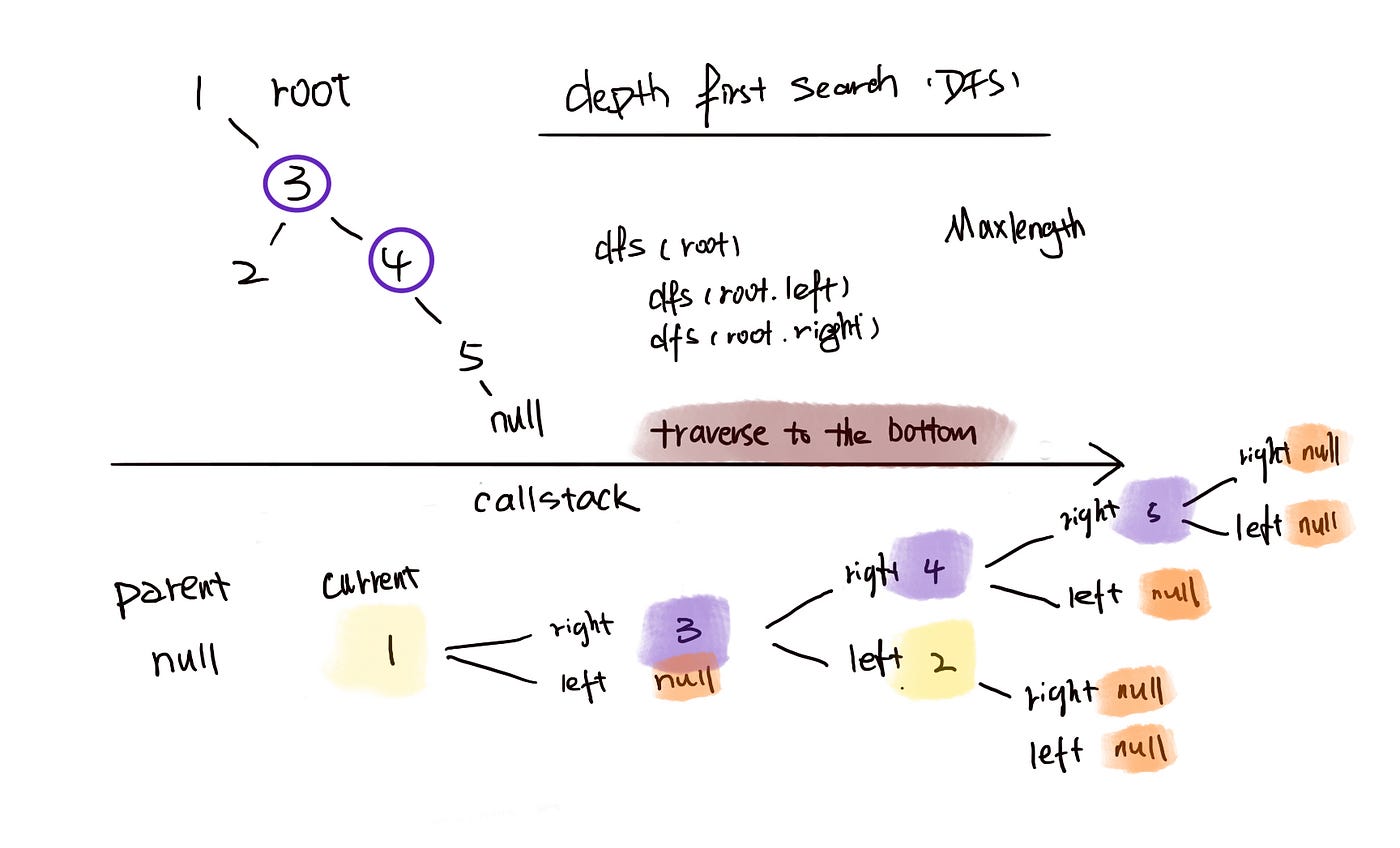 1 root
depth first search (DFS)
3
2
4
5
null
dfs (root)
dfs (root.left)
dfs (root.right)
Maxlength
traverse to the bottom
callstack
parent
null
current
1
right 3
left null
right 4
left 2
right 5
left null
right null
left null
right null
left null